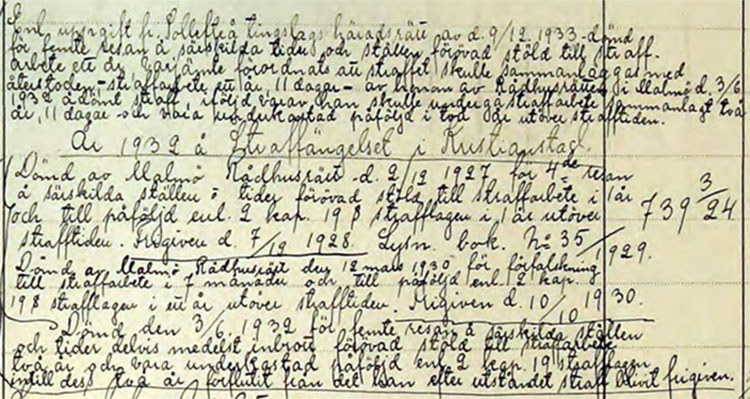 Enl. uppgift fr. Sollefteå tingslags häradsrätt av d. 9/12 1933 dömd
för femte resan å särskilda tider och ställen förövad stöld till straff-
arbete ett år varjämte förordnats att straffet skulle sammanläggas med
återstoden, straffarbete ett år, 11 dagar – av honom av Rådhusrätten i Malmö d. 3/6
1932 ådömt straff, i följd varav han skulle undergå straffarbete sammanlagt två
år, 11 dagar och vara underkastad påföljd i två år utöver strafftiden.
År 1932 å Straffängelset i Kristianstad.
Dömd av Malmö Rådhusrätt d. 2/12 1927 för 4de resan
å särskilda ställen o tider förövad stöld till straffarbete i 1 år
och till påföljd enl. 2 kap. 19 § strafflagen i 1 år utöver
strafftiden. Frigiven d. 7/12 1928. Lysn. bok. No 35/1929.
739 3/24.
Dömd av Malmö Rådhusrätt den 12 mars 1930 för förfalskning
till straffarbete i 7 månader och till påföljd enl. 2 kap.
19 § strafflagen i ett år utöver strafftiden. Frigiven d. 10/10 1930.
Dömd den 3/6 1932 för femte resan å särskilda ställen
och tider delvis medelst inbrott förövad stöld till straffarbete
två år och vara underkastad påföljd enl. 2 kap. 19 § strafflagen
intill dess två år förflutit från det han efter utståndet straff blivit frigiven.